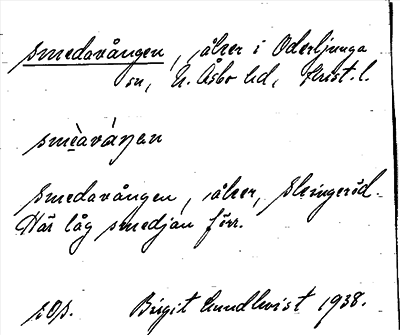 Smedavången, åker i Oderljunga
sn, N. Åsbo hd, Krist. l.
smèaváŋen
Smedavången, åker, Skingeröd.
Här låg smedjan förr.
Birgit Lundkvist 1938.